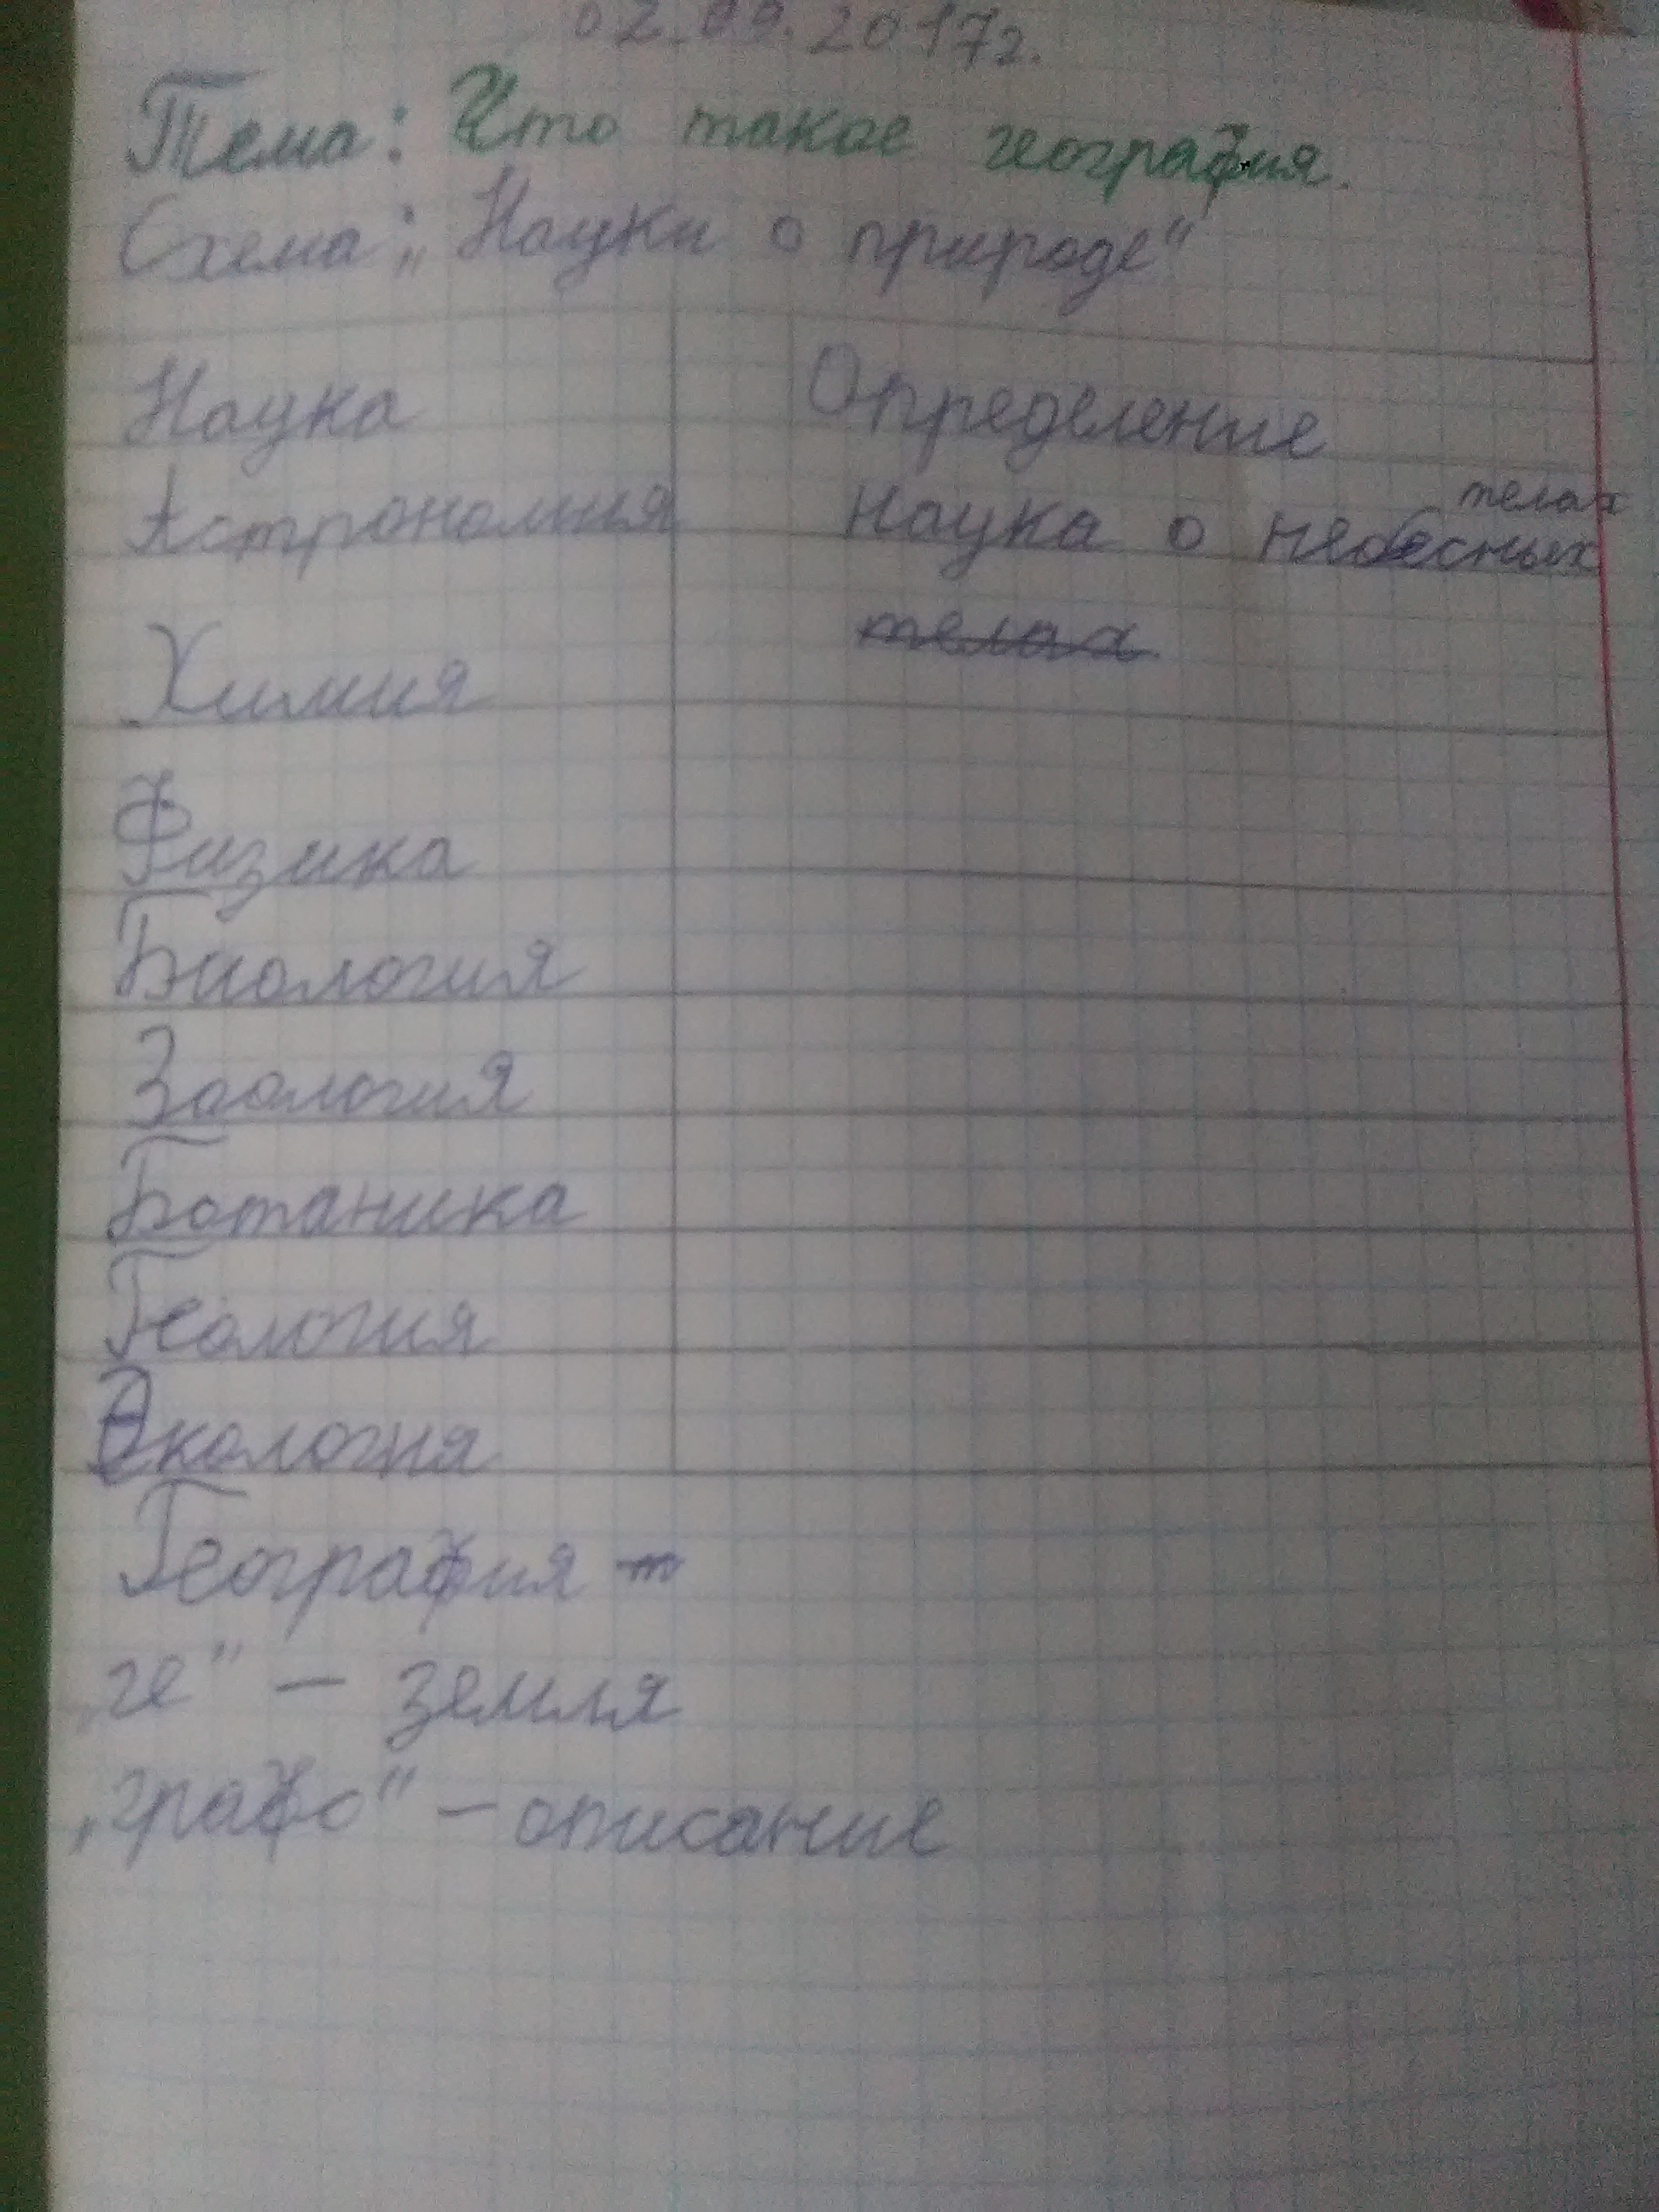 02.09.2017г.
Тема: Что такое география.
Схема: „Науки о природе"
Наука Определение
Астрономия Наука о небесных телах
телах
Химия
Физика
Биология
Зоология
Ботаника
Геология
Экология
География –
„ге" – земля
„графо" – описание